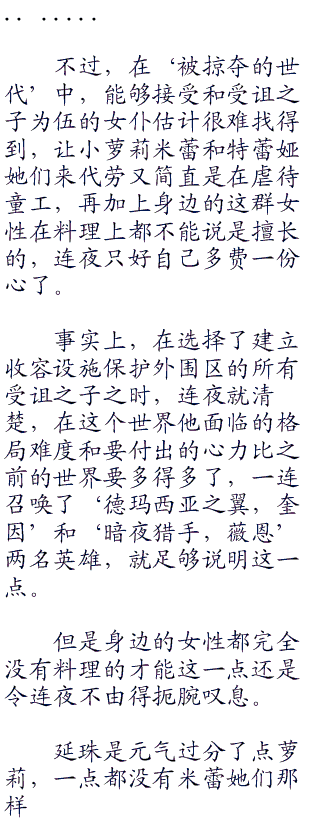 .. .....
不过，在‘被掠夺的世
代’中，能够接受和受诅之
子为伍的女仆估计很难找得
到，让小萝莉米蕾和特蕾娅
她们来代劳又简直是在虐待
童工，再加上身边的这群女
性在料理上都不能说是擅长
的，连夜只好自己多费一份
心了。
事实上，在选择了建立
收容设施保护外围区的所有
受诅之子之时，连夜就清
楚，在这个世界他面临的格
局难度和要付出的心力比之
前的世界要多得多了，一连
召唤了‘德玛西亚之翼，奎
因’和‘暗夜猎手，薇恩’
两名英雄，就足够说明这一
点。
但是身边的女性都完全
没有料理的才能这一点还是
令连夜不由得扼腕叹息。
延珠是元气过分了点萝
莉，一点都没有米蕾她们那
样